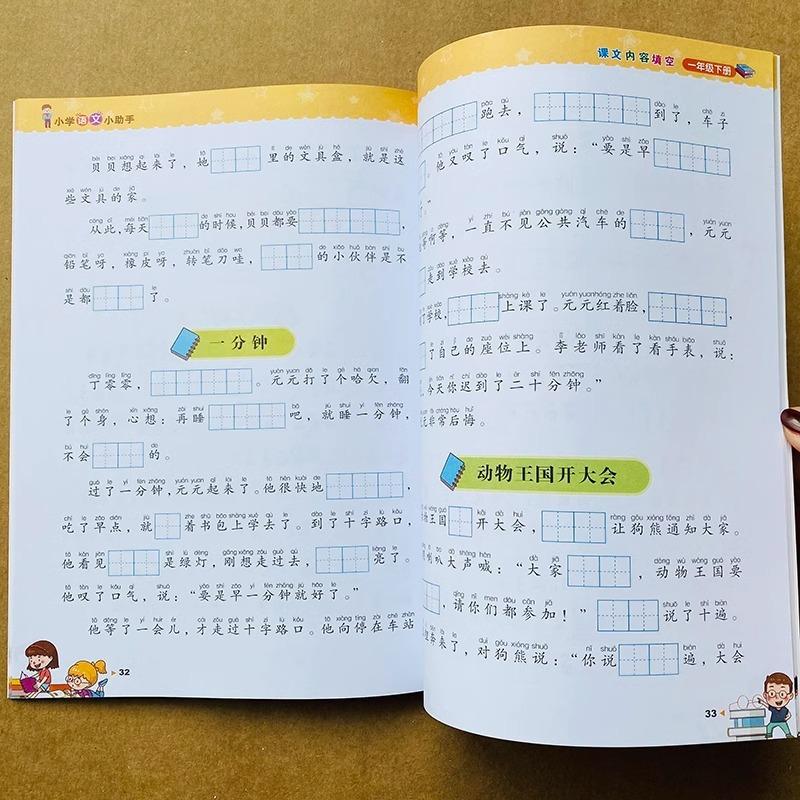 小学语文小助手
bèi bei xiǎng qǐ lái le tā lǐ de wén jù hé jiù shì zhè
贝贝想起来了，她里的文具盒，就是这
xiē wén jù de jiā
些文具的家。
cóng cǐ měi tiān de shí hou bèi bei dōu yào
从此，每天的时候，贝贝都要，
qiān bǐ ya xiàng pí ya zhuàn bǐ dāo wa de xiǎo huǒ bàn shì bù
铅笔呀，橡皮呀，转笔刀哇，的小伙伴是不
shì dōu le
是都了。
一分钟
dīng líng líng yuán yuan dǎ le gè hā qian fān
丁零零，。元元打了个哈欠，翻
le gè shēn xīn xiǎng zài shuì ba jiù shuì yì fēn zhōng
了个身，心想：再睡吧，就睡一分钟，
bú huì de
不会的。
guò le yì fēn zhōng yuán yuan qǐ lái le tā hěn kuài de
过了一分钟，元元起来了。他很快地，
chī le zǎo diǎn jiù zhe shū bāo shàng xué qù le dào le shí zì lù kǒu
吃了早点，就着书包上学去了。到了十字路口，
tā kàn jiàn shì lǜ dēng gāng xiǎng zǒu guò qù liàng le
他看见是绿灯，刚想走过去，亮了。
tā tàn le kǒu qì shuō yào shi zǎo yì fēn zhōng jiù hǎo le
他叹了口气，说：“要是早一分钟就好了。”
tā děng le yí huìr cái zǒu guò shí zì lù kǒu tā xiàng tíng zài chē zhàn
他等了一会儿，才走过十字路口。他向停在车站
32
课文内容填空 一年级下册
pǎo qù dào le chē zi
跑去，到了，车子
tā yòu tàn le kǒu qì shuō yào shi zǎo
。他又叹了口气，说：“要是早
。”
děng yì zhí bú jiàn gōng gòng qì chē de yuán yuan
等啊等，一直不见公共汽车的，元元
zǒu dào xué xiào qù
走到学校去。
shàng kè le yuán yuan hóng zhe liǎn
了学校，上课了。元元红着脸，，
le zì jǐ de zuò wèi shàng lǐ lǎo shī kàn le kàn shǒu biǎo shuō
了自己的座位上。李老师看了看手表，说：
jīn tiān nǐ chí dào le èr shí fēn zhōng
，今天你迟到了二十分钟。”
fēi cháng hòu huǐ
元非常后悔。
动物王国开大会
wù wáng guó kāi dà huì ràng gǒu xióng tōng zhī dà jiā
物王国开大会，让狗熊通知大家。
lǎ ba dà shēng hǎn dà jiā dòng wù wáng guó yào
喇叭大声喊：“大家，动物王国要
qǐng nǐ men dōu cān jiā shuō le shí biàn
，请你们都参加！”说了十遍。
lái le duì gǒu xióng shuō nǐ shuō biàn dà huì
奔来了，对狗熊说：“你说遍，大会
33